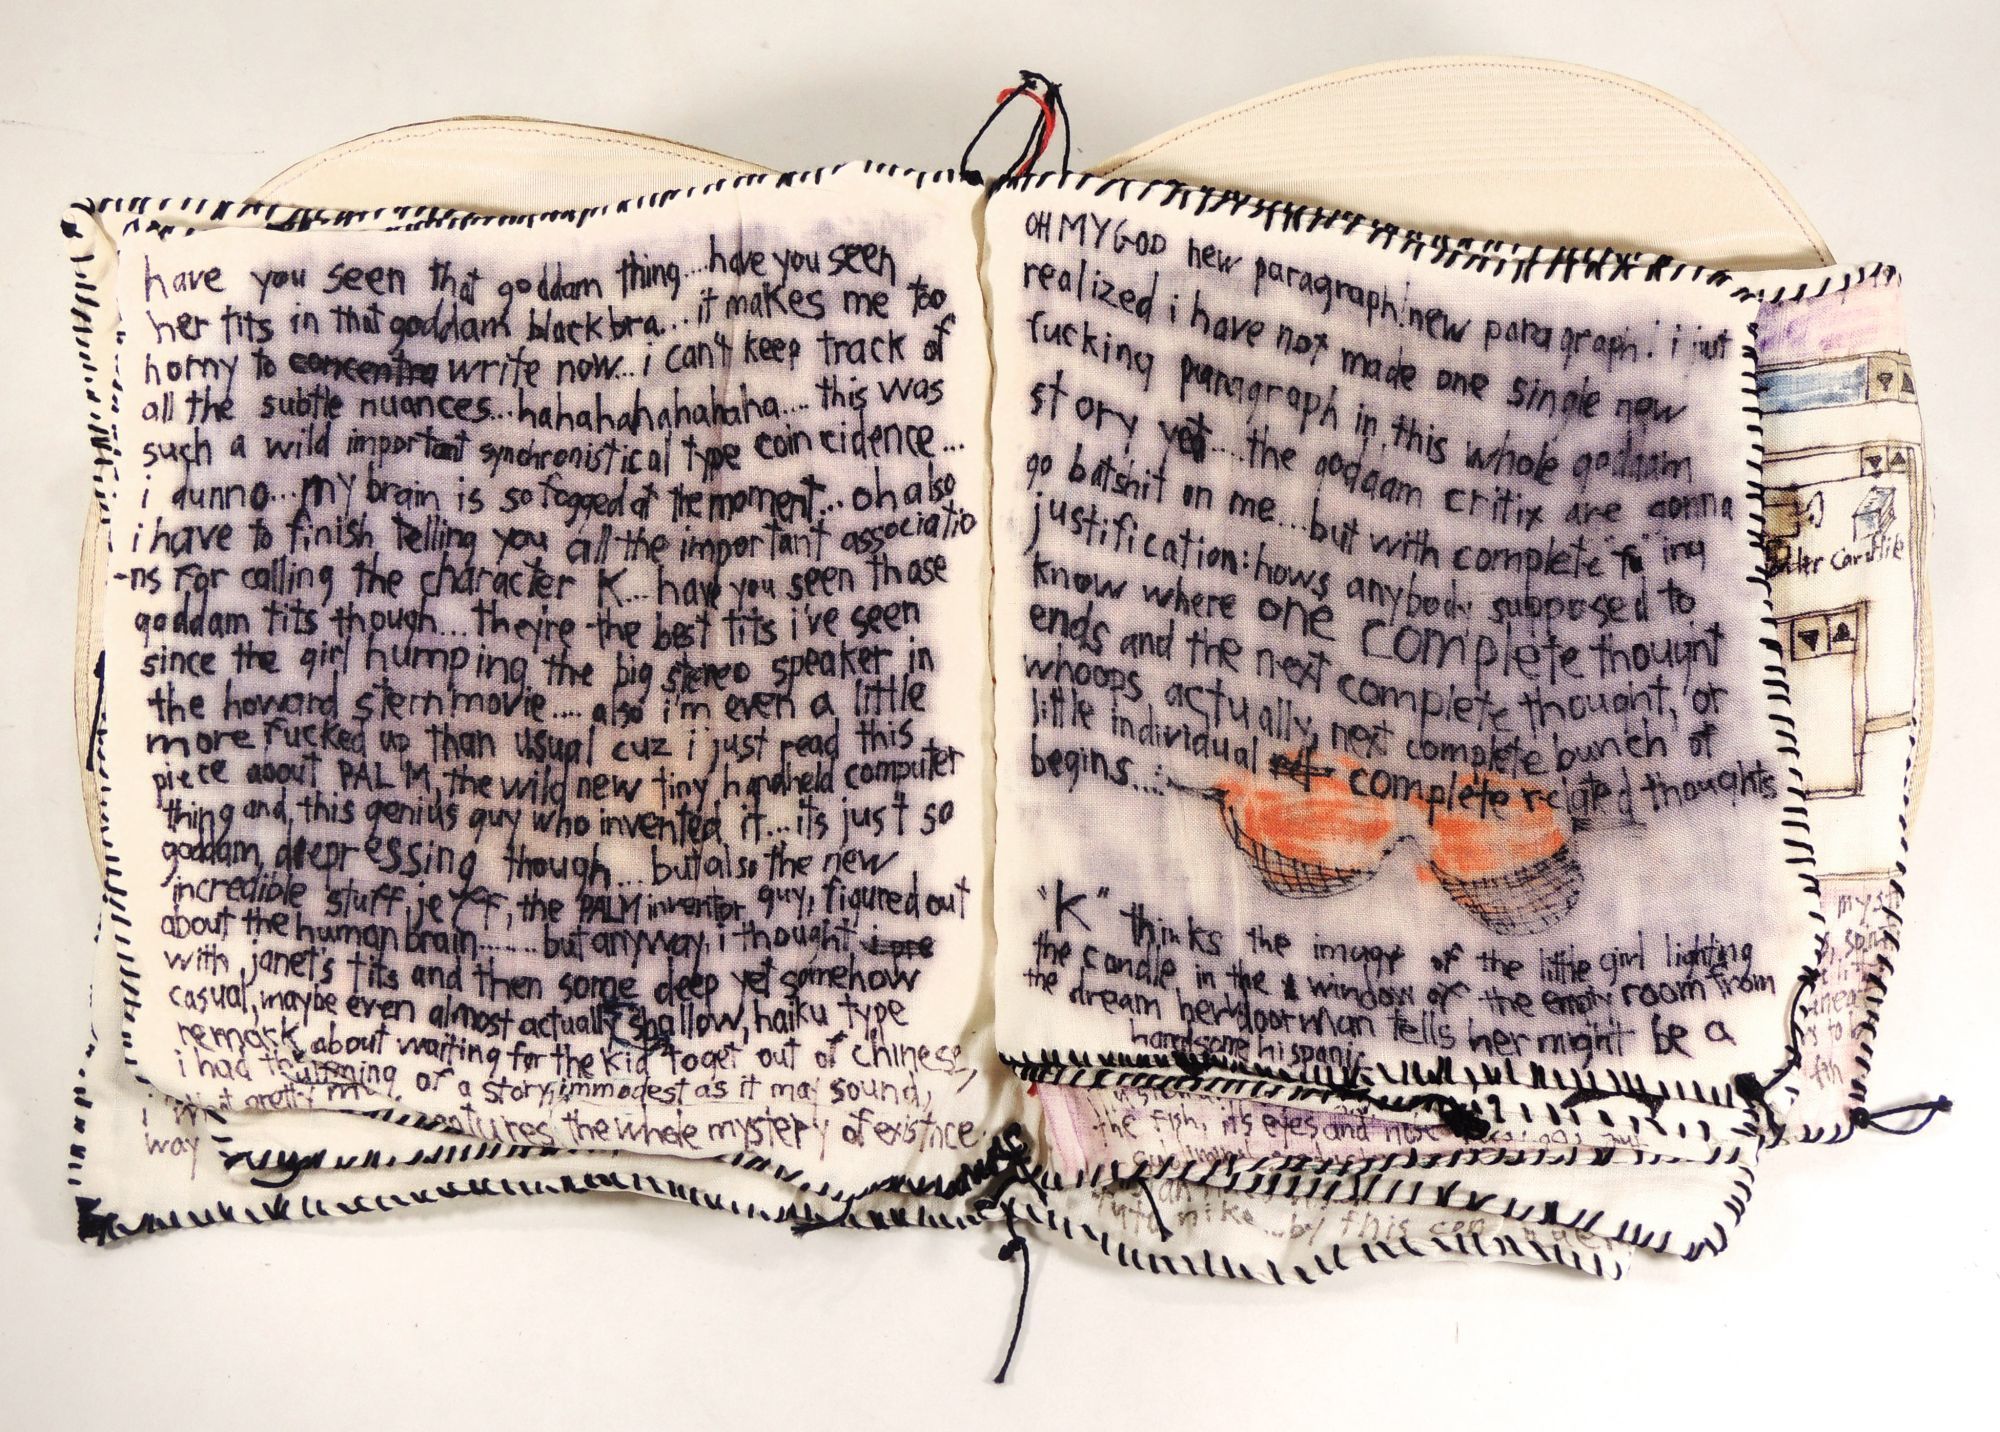 have you seen that goddam thing...have you seen
her tits in that goddam black bra...it makes me too
horny to concentra write now...i can't keep track of
all the subtle nuances...hahahahahahaha....this was
such a wild important synchronistical type coincidence...
i dunno...my brain is so fogged at the moment...oh also
i have to finish telling you all the important associatio
-ns for calling the character K...have you seen those
goddam tits though...they're the best tits i've seen
since the girl humping the big stereo speaker in
the howard stern movie.....also i'm even a little
more fucked up than usual cuz i just read this
piece about PALM, the wild new tiny handheld computer
thing and this genius guy who invented it...its just so
goddam deepressing though...but also the new
incredible stuff jeff, the PALM inventor guy, figured out
about the human brain........but anyway, i thought i
with janet's tits and then some deep yet somehow
casual, maybe even almost actually shallow, haiku type
remark about waiting for the kid to get out of chinese,
i had the of a story, immodest as it may sound,
i what pretty
way the whole mystery of existnce
OH MY GOD new paragraph! new paragraph! i just
realized i have not made one single new
fucking paragraph in this whole goddam
story yet.....the goddam critix are gonna
go batshit on me...but with complete ing
justification: hows anybody supposed to
know where one complete thought
ends and the next complete thought, or
whoops actually, next complete bunch of
little individual complete related thoughts
begins....:
"K" thinks the image of the little girl lighting
the candle in the window of the empty room from
the dream her doorman tells her might be a
handsome hispanic
the fish, its eyes and nose
by this con